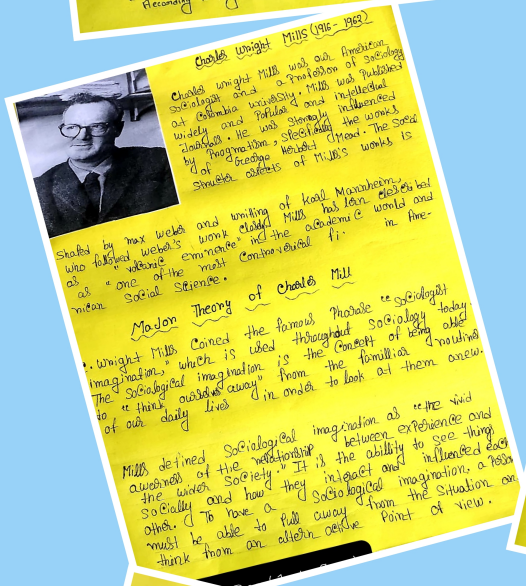 According
Charles Wright Mills (1916 - 1962)
Charles Wright Mills was our American
sociologist and a Professor of Sociology
at Columbia University. Mills was Published
widely and Popular and intellectual
Journals. He was strongly influenced
by Pragmatism, specifically the works
of George Herbert Mead. The Social
structer aspects of Mills's works is
Shafed by max weber and writting of Karl Mannheim,
who followed weber's work closely Mills has been described
as "volcanic eminence" in the academic world and
as "one of the most Controverical fi. in Ame-
rican Social Science.
Major Theory of Charles Mill
. Wright Mills Coined the famous Pharase "sociologist
imagination," which is used throughout sociology today.
The Sociological imagination is the Concept of being able
to "think ourselves away" from the familliar routines
of our daily lives in order to look at them anew.
Mills defined Sociological imagination as "the vivid
awerness of the relationship between experience and
the wider Society." It is the abillity to see things
socially and how they interact and influenced each
other. To have a Sociological imagination, a Person
must be able to Pull away from the situation an
think from an altern active Point of view.